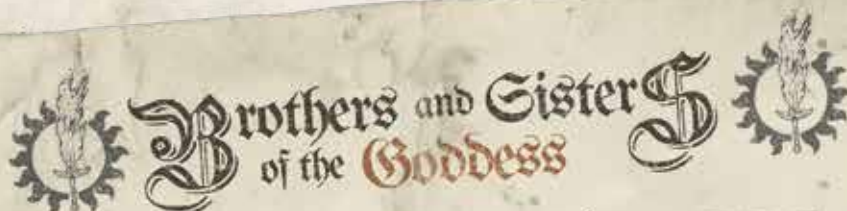 Brothers and Sisters
of the Goddess